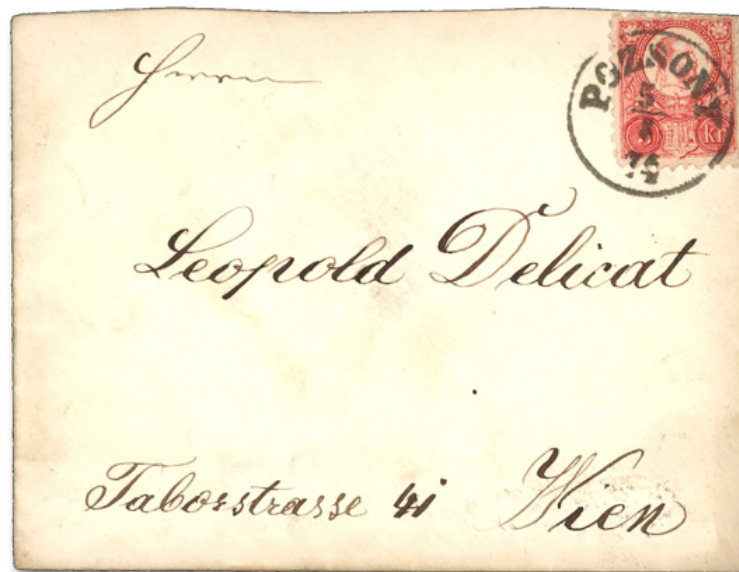 Herrn
POZSONY
5
74
kr
Leopold Delicat
Taborstrasse 41 Wien